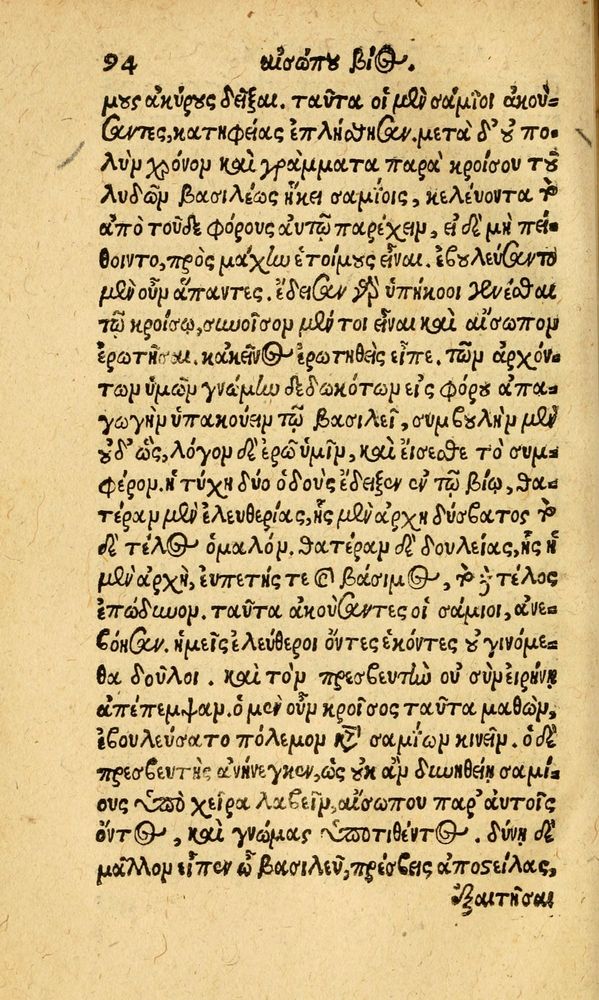 94 αἰσώπου βίος.
μους ἀκύρους δεῖξαι. ταῦτα οἱ μὲν σάμιοι ἀκού-
σαντες, κατηφείας ἐπλήσθησαν. μετὰ δ' οὐ πο-
λὺν χρόνον καὶ γράμματα παρὰ κροίσου τοῦ
λυδῶν βασιλέως ἥκει σαμίοις, κελεύοντα τὸ
ἀπὸ τοῦδε φόρους αὐτῷ παρέχειν, εἰ δὲ μὴ πεί-
θοιντο, πρὸς μάχην ἑτοίμους εἶναι. ἐβουλεύσαντο
μὲν οὖν ἅπαντες. ἔδεισαν γὰρ ὑπήκοοι γενέσθαι
τῷ κροίσῳ, συνοῖσον μέν τοι εἶναι καὶ αἴσωπον
ἐρωτῆσαι. κἀκεῖνος ἐρωτηθεὶς εἶπε. τῶν ἀρχόν-
των ὑμῶν γνώμην δεδωκότων εἰς φόρου ἀπα-
γωγὴν ὑπακούειν τῷ βασιλεῖ, συμβουλὴν μὲν
οὐδ' ὣς, λόγον δὲ ἐρῶ ὑμῖν, καὶ εἴσεσθε τὸ συμ-
φέρον. ἡ τύχη δύο ὁδοὺς ἔδειξεν ἐν τῷ βίῳ, θα-
τέραν μὲν ἐλευθερίας, ἧς μὲν ἀρχὴ δύσβατος τὸ
δὲ τέλος ὁμαλόν. θατέραν δὲ δουλείας, ἧς ἡ
μὲν ἀρχὴ, εὐπετής τε καὶ βάσιμος, τὸ δὲ τέλος
ἐπώδυνον. ταῦτα ἀκούσαντες οἱ σάμιοι, ἀνε-
βόησαν. ἡμεῖς ἐλεύθεροι ὄντες ἑκόντες οὐ γινόμε-
θα δοῦλοι. καὶ τὸν πρεσβευτὴν οὐ σὺν εἰρήνῃ
ἀπέπεμψαν. ὁ μὲν οὖν κροῖσος ταῦτα μαθὼν,
ἐβουλεύσατο πόλεμον κατὰ σαμίων κινεῖν. ὁ δὲ
πρεσβευτὴς ἀνήνεγκεν, ὡς οὐκ ἂν δυνηθείη σαμί-
ους ὑπὸ χεῖρα λαβεῖν, αἰσώπου παρ' αὐτοῖς
ὄντος, καὶ γνώμας ὑποτιθέντος. δύνῃ δὲ
μᾶλλον εἶπεν ὦ βασιλεῦ, πρέσβεις ἀποστείλας,
ἐξαιτῆσαι